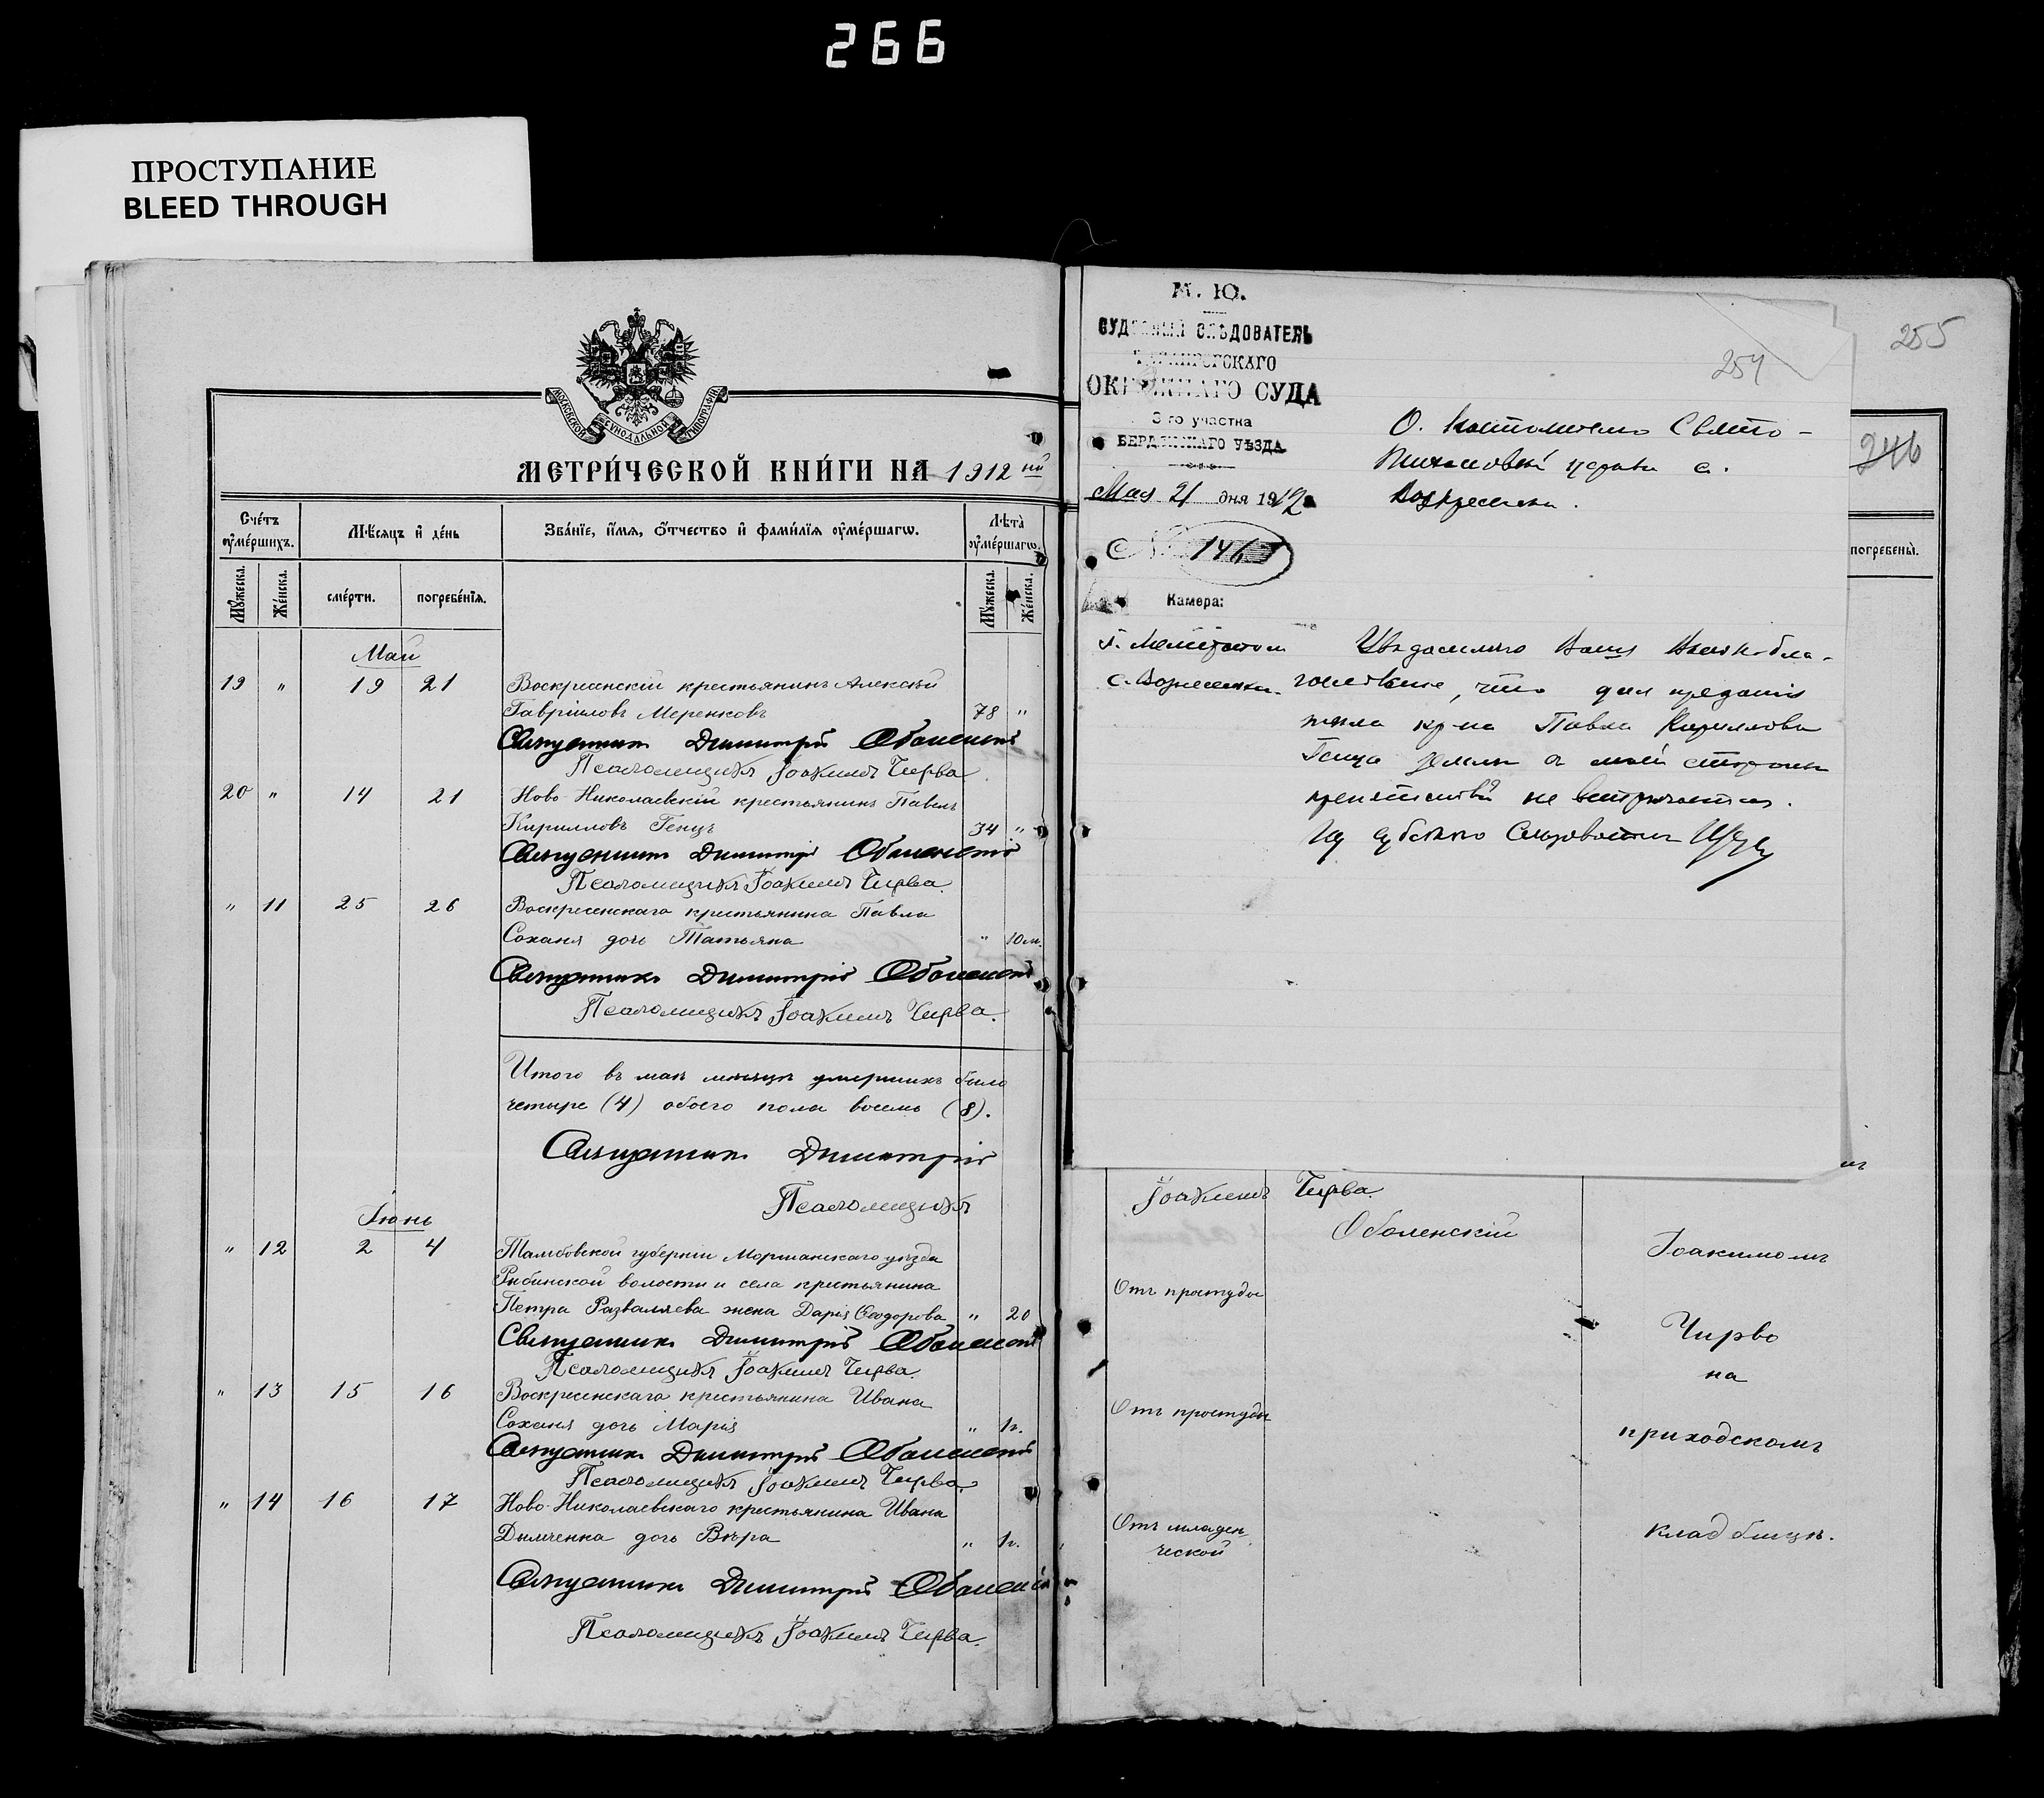 266
ПРОСТУПАНИЕ
BLEED THROUGH
МОСКОВСКОЙ СѴНОДАЛЬНОЙ ТИПОГРАФІИ
МЕТРИ́ЧЕСКОЙ КНИ́ГИ НА 1912 ый
Сче́тъ ᲂу҆ме́ршихъ.
Мѣ́сяцъ и҆ де́нь
Зва́нїе, и҆́мѧ, ѻ҆́тчество и҆ фами́лїѧ ᲂу҆ме́ршагѡ.
Лѣ́та ᲂу҆ме́ршагѡ.
Мꙋ́жеска.
Же́нска.
сме́рти.
погребе́нїѧ.
Мꙋ́жеска.
Же́нска.
Май
19 " 19 21 Воскресенскій крестьянинъ Алексѣй
Гавріиловъ Меренковъ 78 "
Священникъ Димитрій Оболенскій
Псаломщикъ Іоакимъ Чирва
20 " 14 21 Ново-Николаевскій крестьянинъ Павелъ
Кирилловъ Генцъ 34 "
Священникъ Димитрій Оболенскій
Псаломщикъ Іоакимъ Чирва.
" 11 25 26 Воскресенскаго крестьянина Павла
Соханя дочь Татьяна " 10 м.
Священникъ Димитрій Оболенскій
Псаломщикъ Іоакимъ Чирва.
Итого въ маѣ мѣсяцѣ умершихъ было
четыре (4) обоего пола восемь (8).
Священникъ Димитрій
Псаломщикъ
Іюнь
" 12 2 4 Тамбовской губерніи Моршанскаго уѣзда
Рыбинской волости и села крестьянина
Петра Разваляева жена Дарія Ѳеодорова " 20
Священникъ Димитрій Оболенскій
Псаломщикъ Іоакимъ Чирва.
" 13 15 16 Воскресенскаго крестьянина Ивана
Соханя дочь Марія " 1 г.
Священникъ Димитрій Оболенскій
Псаломщикъ Іоакимъ Чирва.
" 14 16 17 Ново-Николаевскаго крестьянина Ивана
Дымченка дочь Вѣра " 1 г.
Священникъ Димитрій Оболенскій
Псаломщикъ Іоакимъ Чирва.
М. Ю.
СУДЕБНЫЙ СЛѢДОВАТЕЛЬ
ТАГАНРОГСКАГО
ОКРУЖНАГО СУДА
3-го участка
БЕРДЯНСКАГО УѢЗДА
Мая 21 дня 1912
Камера:
с. Вознесенка.
254
255
246
погребены̀.
О. Настоятелю Свято-
церкви с.
Воскресенки.
Увѣдомляю Ваше Высокобла-
гословеніе, что для преданія
тѣла кр-на Павла Кириллова
Генца землѣ съ моей стороны
препятствій не встрѣчается.
Слѣдователь
Іоакимъ Чирва.
Оболенскій
Отъ простуды
Отъ простуды
Отъ младен-
ческой
Іоакимомъ
Чирво
на
приходскомъ
кладбищѣ.